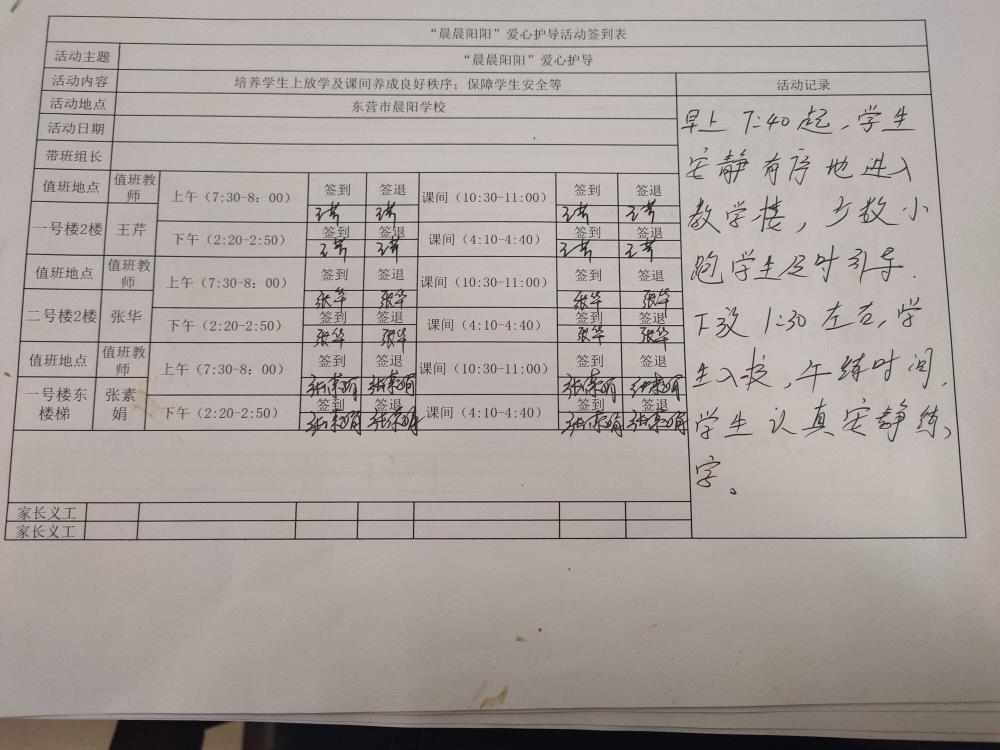 “晨晨阳阳”爱心护导活动签到表
活动主题 “晨晨阳阳”爱心护导
活动内容 培养学生上放学及课间养成良好秩序；保障学生安全等 活动记录
活动地点 东营市晨阳学校
活动日期
带班组长
值班地点 值班教师 上午（7:30-8：00） 签到 签退 课间（10:30-11:00） 签到 签退
王芹 王芹 王芹 王芹
一号楼2楼 王芹 下午（2:20-2:50） 签到 签退 课间（4:10-4:40） 签到 签退
王芹 王芹 王芹 王芹
值班地点 值班教师 上午（7:30-8：00） 签到 签退 课间（10:30-11:00） 签到 签退
张华 张华 张华 张华
二号楼2楼 张华 下午（2:20-2:50） 签到 签退 课间（4:10-4:40） 签到 签退
张华 张华 张华 张华
值班地点 值班教师 上午（7:30-8：00） 签到 签退 课间（10:30-11:00） 签到 签退
张素娟 张素娟 张素娟 张素娟
一号楼东楼梯 张素娟 下午（2:20-2:50） 签到 签退 课间（4:10-4:40） 签到 签退
张素娟 张素娟 张素娟 张素娟
家长义工
家长义工
早上7:40起，学生
安静有序地进入
教学楼，少数小
跑学生及时引导.
下午1:30左右，学
生入校，午练时间，
学生认真安静练
字。